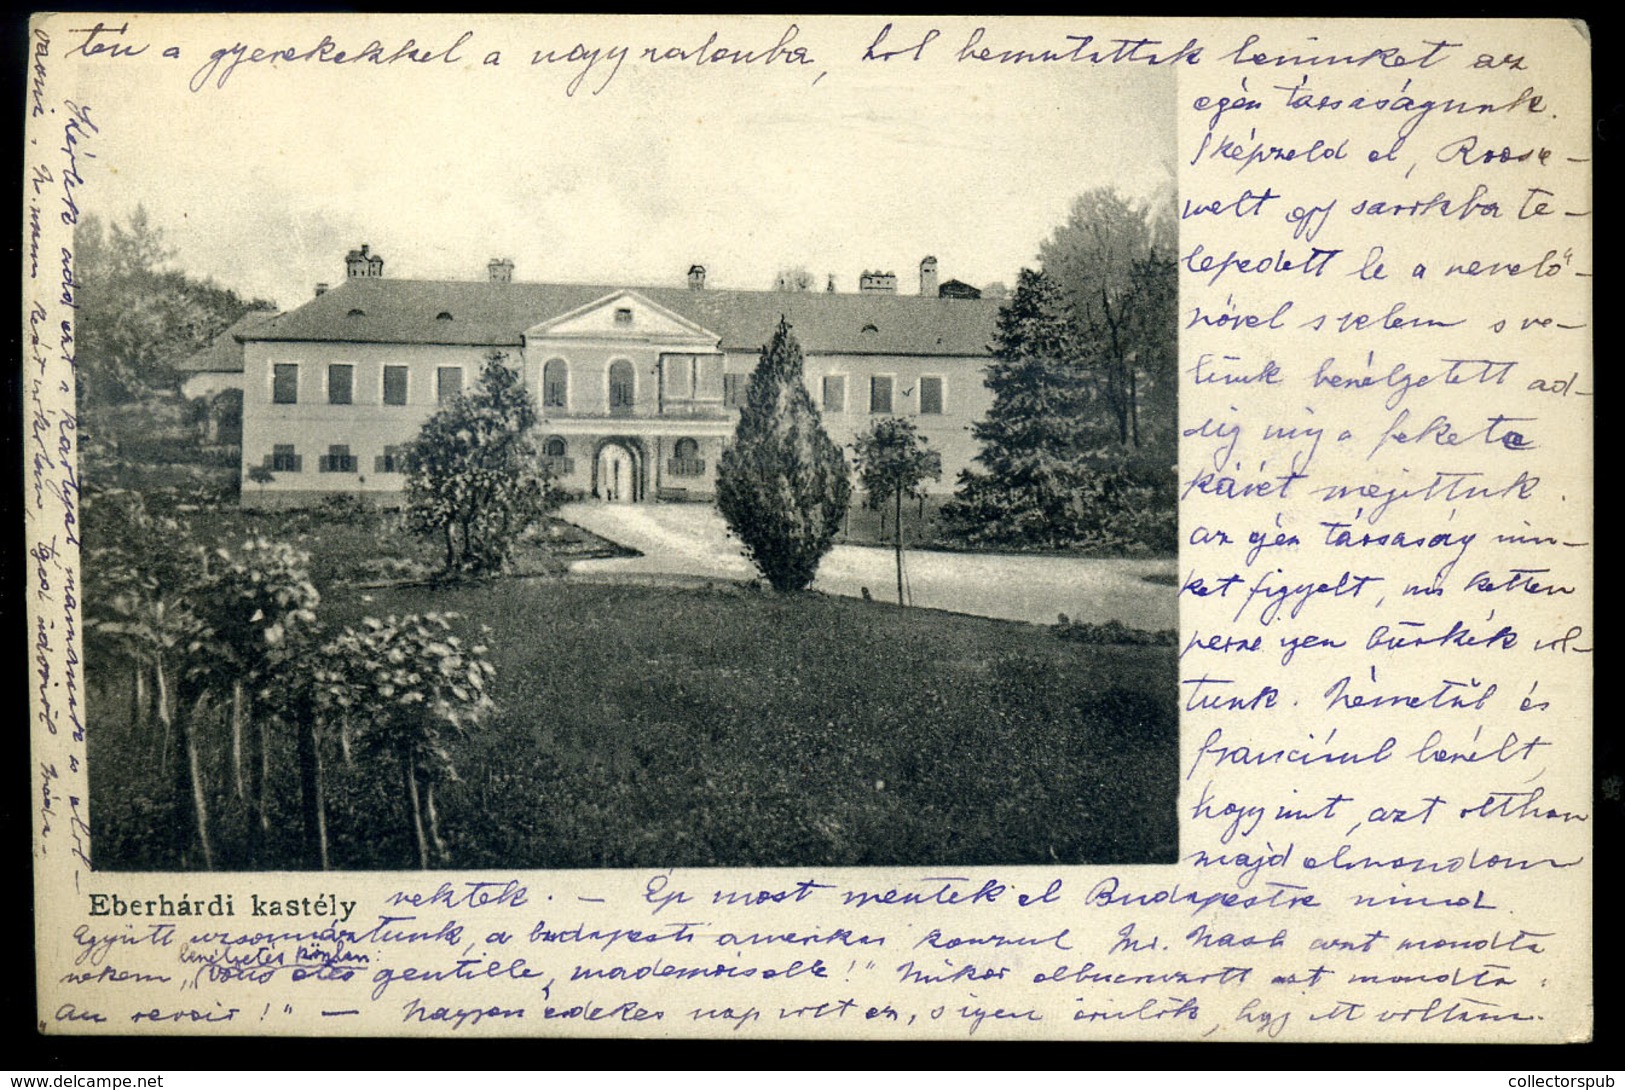 tén a gyerekekkel a nagy szalonba, hol bemutattak bennünket az
egész társaságunk.
Képzeld el, Roose-
welt egy sarokba te-
lepedett le a nevelő-
nővel szelem s ve-
lünk beszélgetett ad-
dig míg a fekete
kávét megittuk.
az egész társaság min-
ket figyelt, mi ketten
persze igen büszkék vol-
tunk. Németül és
franciául beszélt,
hogy mit, azt otthon
majd elmondom
nektek. – Ép most mentek el Budapestre mind.
Együtt uzsonnáztunk, a budapesti amerikai konzul Mr. Nash azt mondta
beszélgetés közben:
nekem, "Vous êtes gentille, mademoiselle!" Mikor elbucsuzott azt mondta:
"au revoir!" – Nagyon érdekes nap volt ez, s igen örülök, hogy itt voltam.
Kérlek add ezt a kártyát mamának is elol-
vasni. tegdi
Eberhárdi kastély
collectorspub